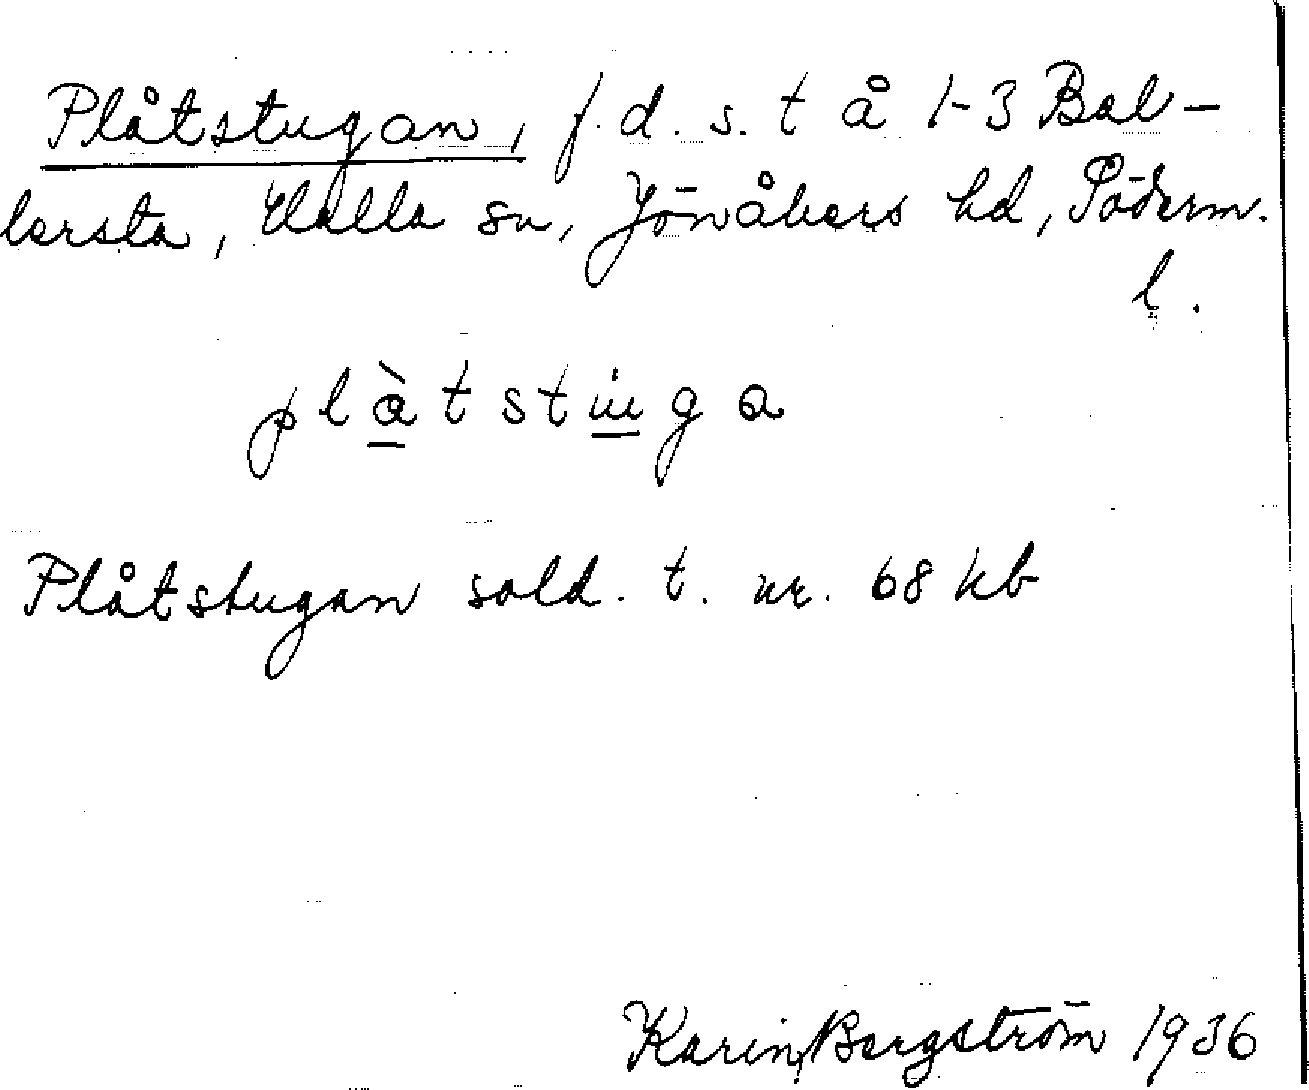 Plåtstugan, f. d. s. t å 1-3 Bal-
lersta, Halla sn, Jönåkers hd, Söderm.
l.
plàtstuga
Plåtstugan sold. t. nr. 68 kb
Karin Bergström 1936